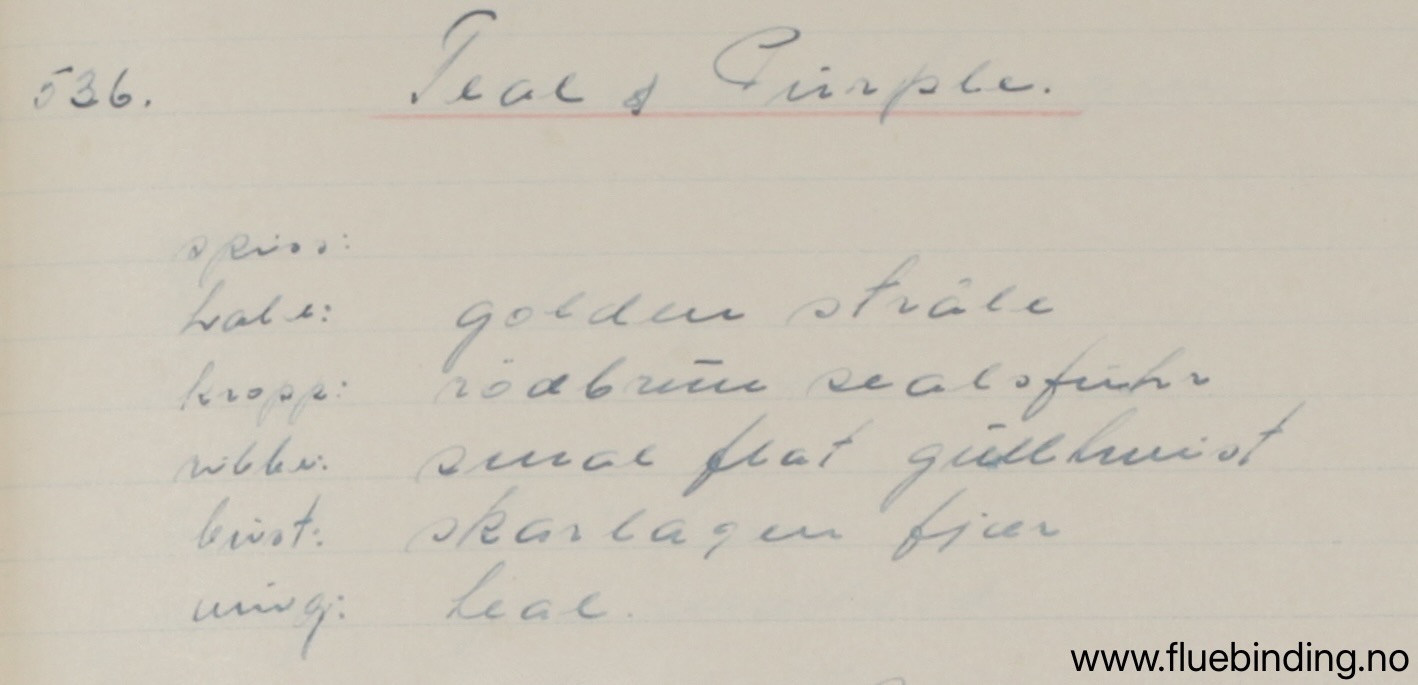 536. Teal & Purple.
spiss:
hale: golden stråle
kropp: rödbrun sealsfuhr
ribbe: smal flat gulltwist
bust: skarlagen fjær
ving: teal.
www.fluebinding.no